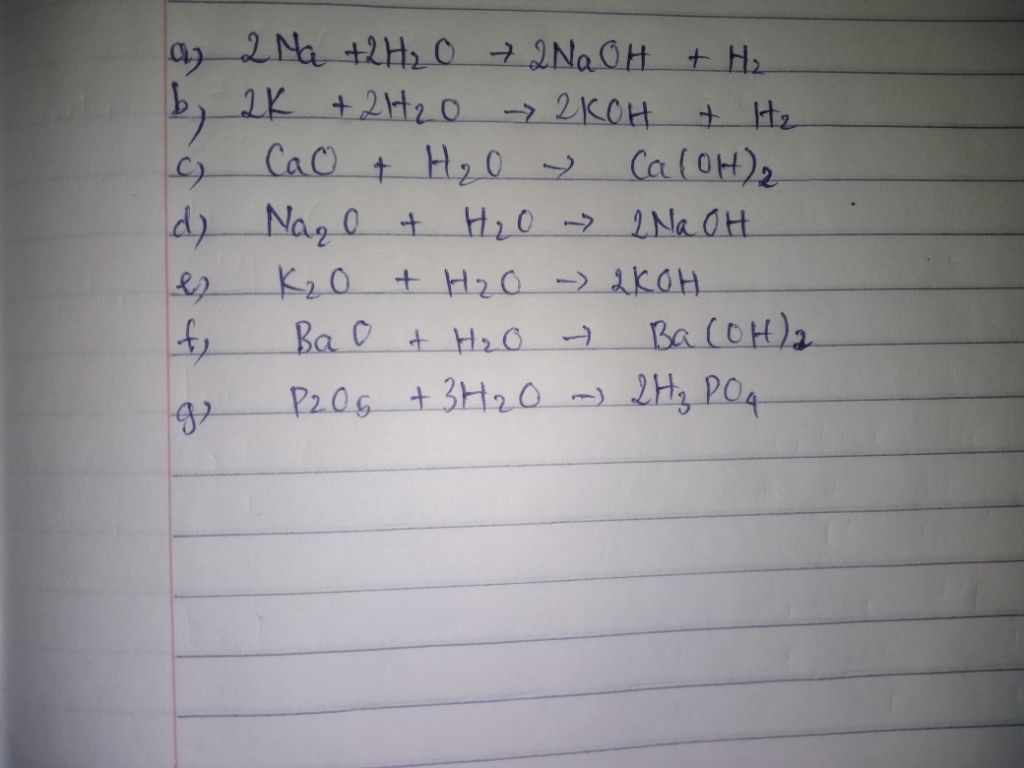 a) 2Na +2H2O → 2NaOH + H2
b) 2K + 2H2O → 2KOH + H2
c) CaO + H2O → Ca(OH)2
d) Na2O + H2O → 2NaOH
e) K2O + H2O → 2KOH
f) BaO + H2O → Ba(OH)2
g) P2O5 + 3H2O → 2H3PO4